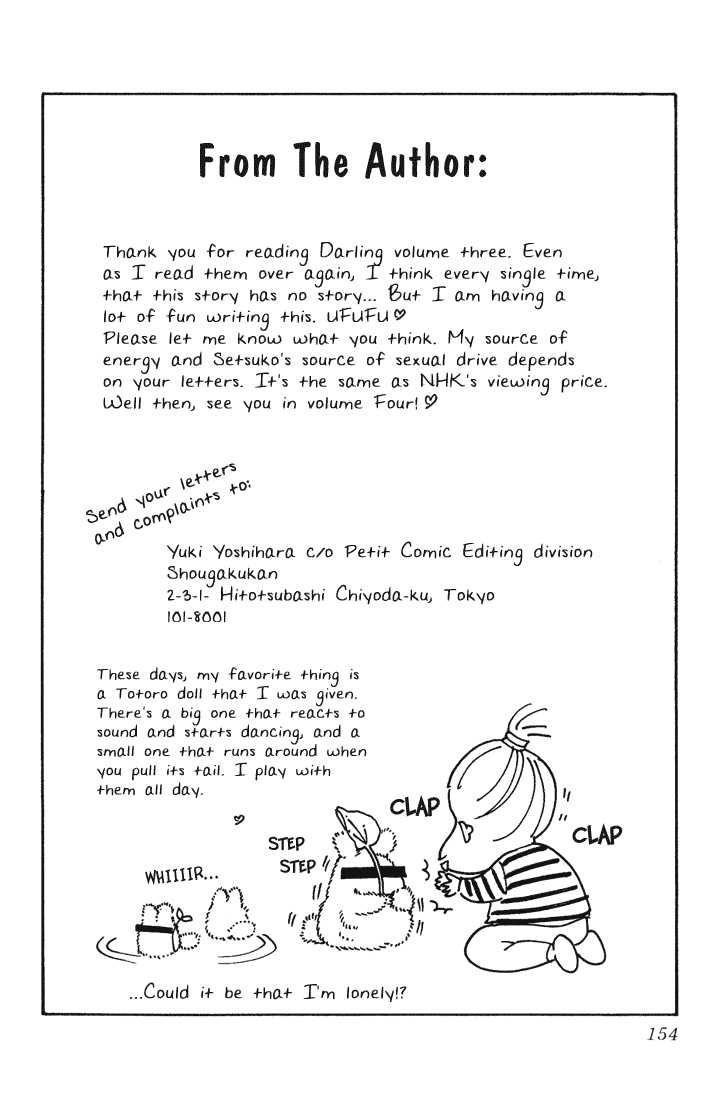 From The Author:
Thank you for reading Darling volume three. Even
as I read them over again, I think every single time,
that this story has no story... But I am having a
lot of fun writing this. UFUFU♡
Please let me know what you think. My source of
energy and Setsuko's source of sexual drive depends
on your letters. It's the same as NHK's viewing price.
Well then, see you in volume Four!♡
Send your letters
and complaints to:
Yuki Yoshihara c/o Petit Comic Editing division
Shougakukan
2-3-1- Hitotsubashi Chiyoda-ku, Tokyo
101-8001
These days, my favorite thing is
a Totoro doll that I was given.
There's a big one that reacts to
sound and starts dancing, and a
small one that runs around when
you pull its tail. I play with
them all day.
♡
CLAP
CLAP
STEP
STEP
WHIIIIR...
...Could it be that I'm lonely!?
154